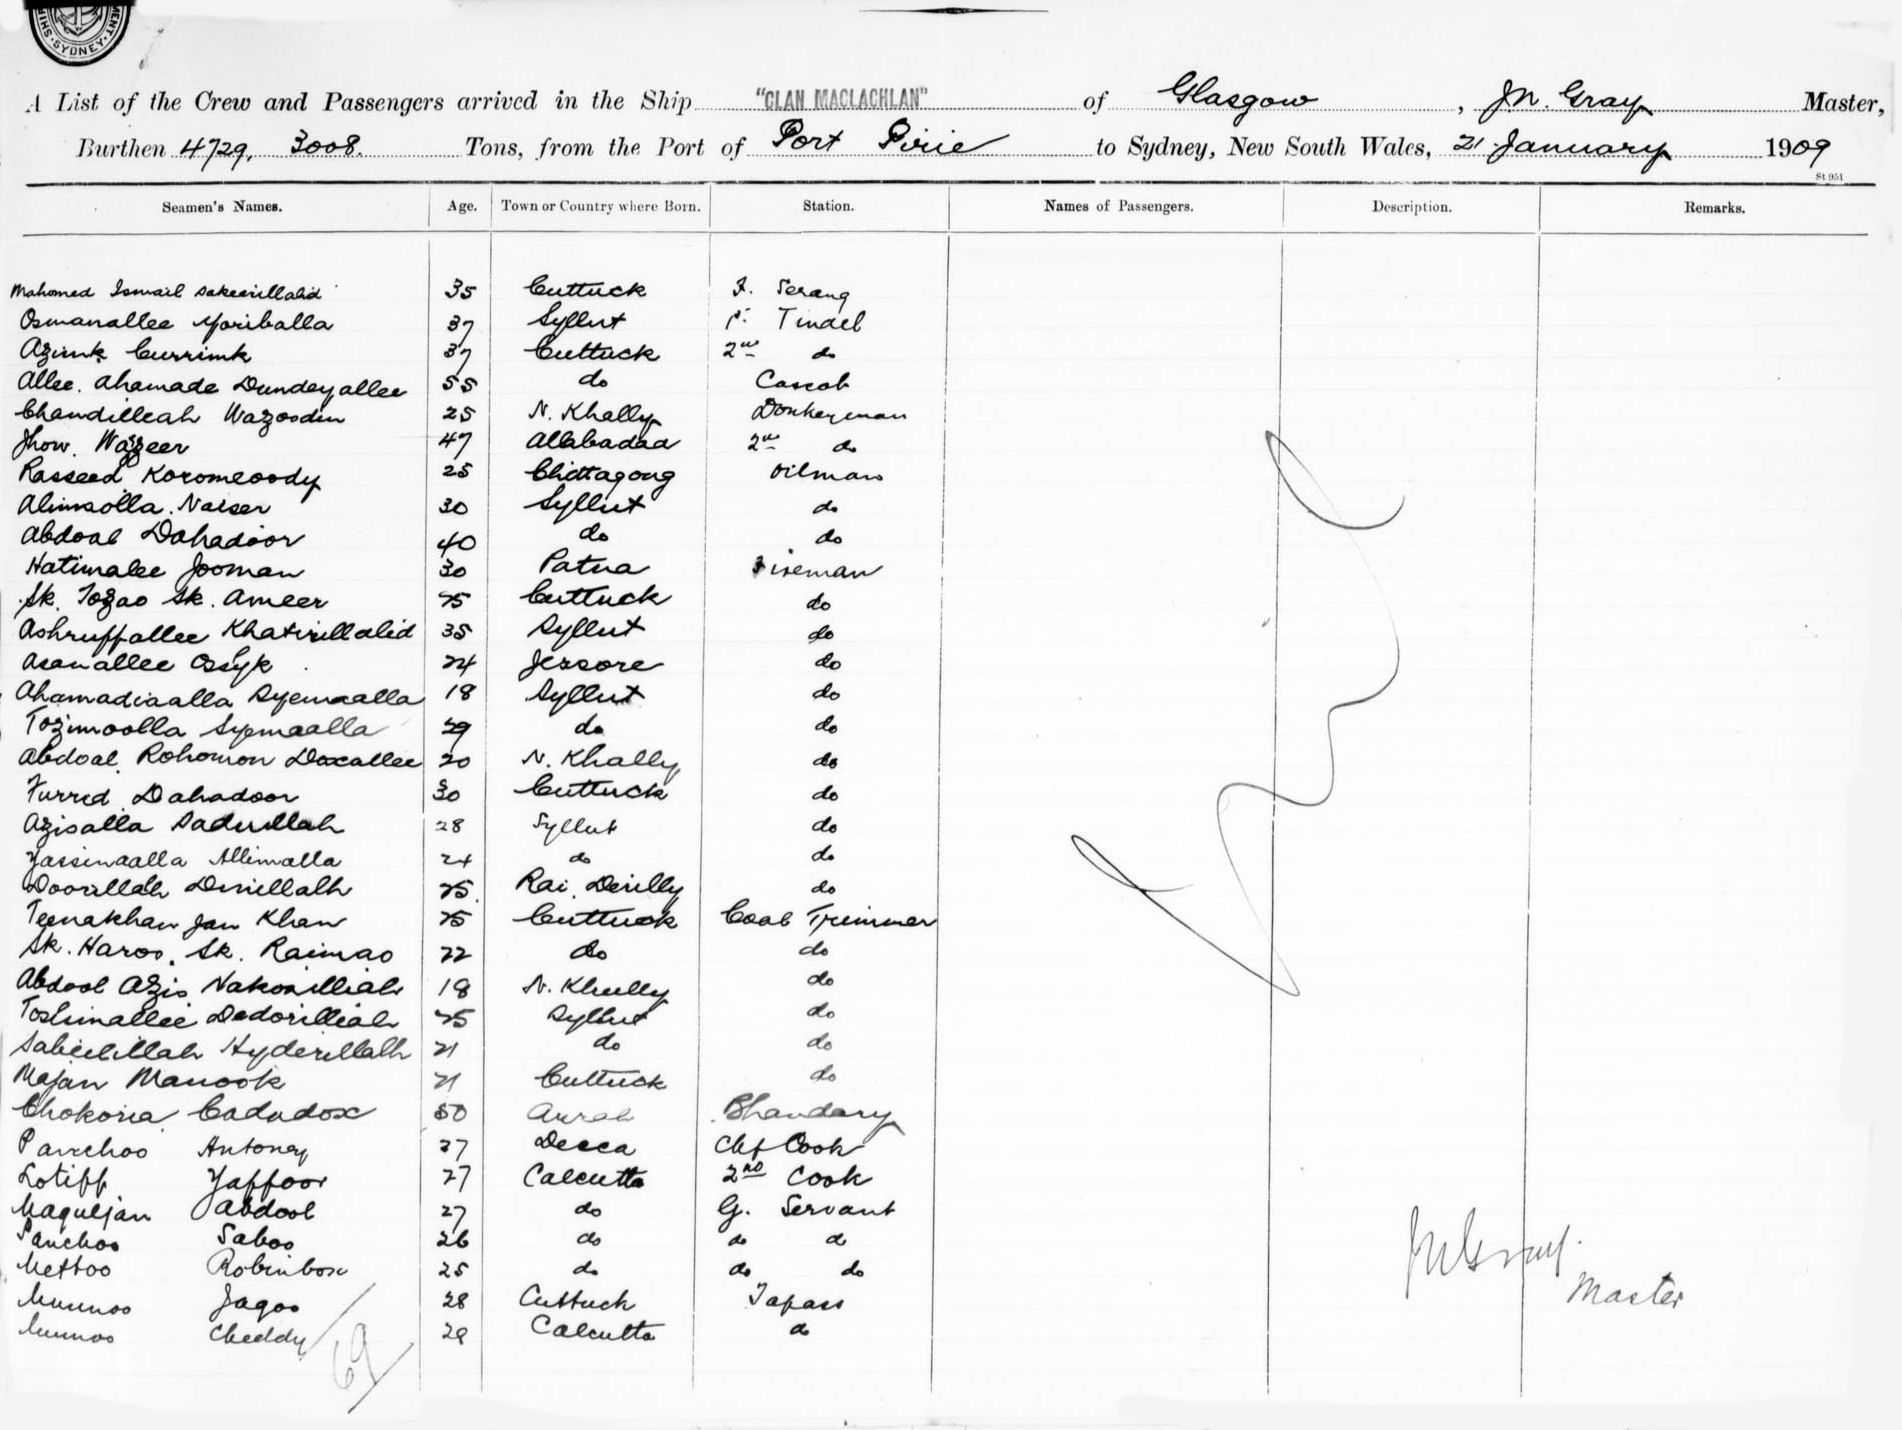 SYDNEY
A List of the Crew and Passengers arrived in the Ship "CLAN MACLACHLAN" of Glasgow, JN. Gray Master,
Burthen 4729, 3008. Tons, from the Port of Port Pirie to Sydney, New South Wales, 21 January 1909
St 951
Seamen's Names. Age. Town or Country where Born. Station. Names of Passengers. Description. Remarks.
Mahomed Ismail 35 Cuttuck F. Serang
Osmanallee 37 Syllut 1st Tindel
Currimk 37 Cuttuck 2nd do
Allee. Ahamade Dundeyallee 55 do Cassab
Chandilleah Wazoodin 25 N. Khally Donkeyman
Jhow. Wazeer 47 Allabadad 2nd do
Rasseed Koromeoody 25 Chittagong Oilman
Alimsolla. Naiser 30 Syllut do
Abdoal Dahadoor 40 do do
Hatimalee Jooman 30 Patna Fireman
Sk. Tozao Sk. Ameer 25 Cuttuck do
Ashruffallee Khatirillalid 35 Syllut do
Asanallee Ossyk 24 Jessore do
Ahamadiaalla Syemaalla 18 Syllut do
Tozimoolla Syemaalla 29 do do
Abdoal Rohomon Doxallee 20 N. Khally do
Furrid Dahadoor 30 Cuttuck do
Azisalla Sadullah 28 Syllut do
Yassinaalla Allimalla 24 do do
Doorillah Dinillalh 25. Rai. Derilly do
Teenakhan Jan Khan 25 Cuttuck Coal Trimmer
Sk. Haroo. Sk. Raimao 22 do do
Abdool Azis 18 N. Khully do
Toslimallee Dedorilliah 25 Syllut do
Hyderillalh 21 do do
Majan Manook 21 Cuttuck do
Chokoria Cadudox 50 Arrah Bhandary
Panchoo Antoney 37 Decca Chf Cook
Lotiff Yaffoor 27 Calcutta 2nd Cook
Maquljan Abdool 27 do G. Servant
Panchoo Saboo 26 do do do
Mettoo Robinbox 25 do do do
Munnoo Jagoo 28 Cuttuck Topass
Munnoo Cheddy 29 Calcutta do
69
JN Gray.
Master